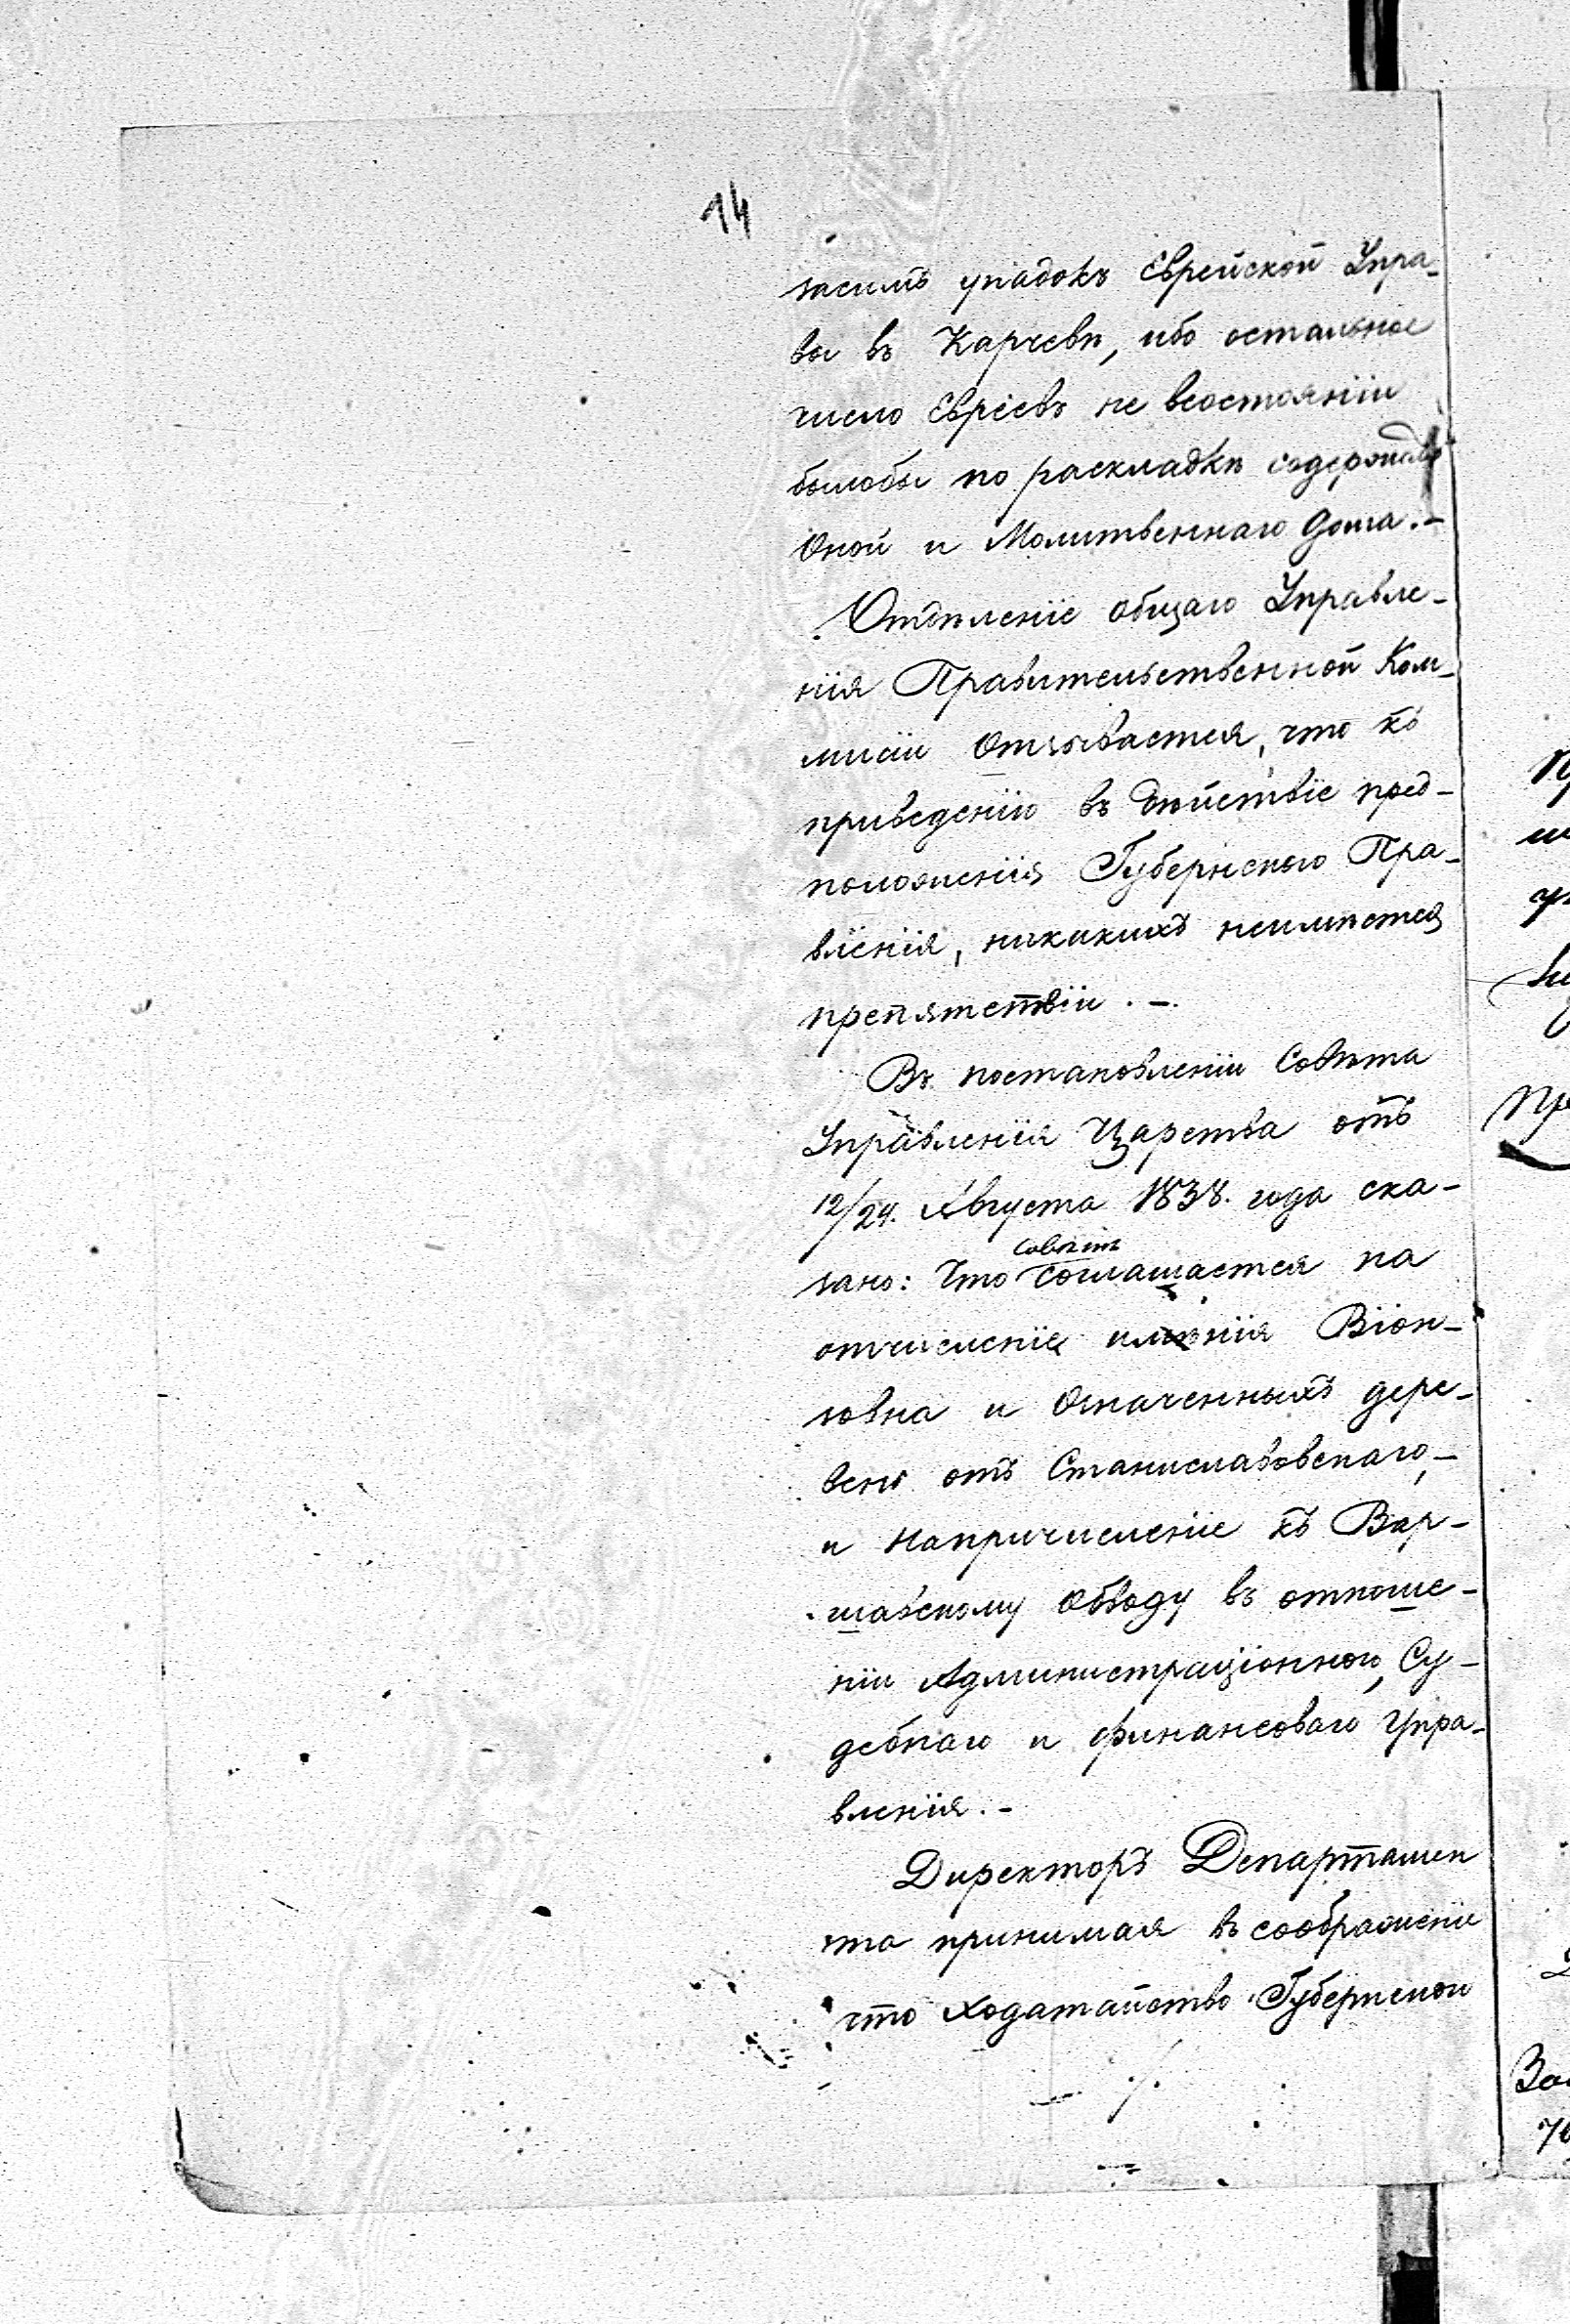 14
засимъ упадокъ Еврейской Упра-
вы въ Карчевѣ, ибо остальное
число Евреевъ не всостояніи
былобы по раскладкѣ содержать
Оной и Молитвеннаго Дома.-
Отдѣленіе общаго Управле-
нія Правительственной Ком-
мисіи Отзывается, что къ
приведенію въ дѣйствіе пред-
положенія Губернского Пра-
вленія, никакихъ неимѣется
препятствіи.-.
Въ постановленіи Совѣта
Управленія Царства отъ
12/24. Августа 1838. года ска-
Совѣтъ
зано: Что соглашается на
отчисленіе имѣнія Віон-
зовна и Означенныхъ дере-
вень отъ Станиславовскаго,-
и Напричисленіе къ Вар-
шавскому Обводу въ отноше-
ніи Администраціонного, Су-
дебнаго и финансоваго Упра-
вленія.-
Директоръ Департамен
та принимая въ сображеніе
что Ходатайство Губернской
./.